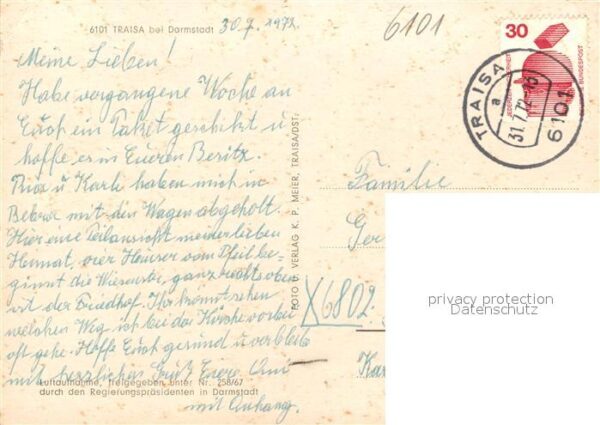 6101 TRAISA bei Darmstadt 30.7.1972.
6101
Meine Lieben!
Habe vergangene Woche an
Euch ein Paket geschickt u
hoffe, es in Eueren Besitz.
u Karli haben mich in
mit den Wagen abgeholt.
Hier eine Teilansicht meiner lieben
Heimat, vier Häuser vom Pfeil be-
ginnt die Wiesenstr, ganz rechts oben
ist der Friedhof. Ihr könnt sehen
welchen Weg ich bei der Kirche vorbei
oft gehe. Hoffe Euch gesund u verbleibe
mit herzlichen Gruß Euere
mit Anhang.
Luftaufnahme, freigegeben unter Nr. 258/67
durch den Regierungspräsidenten in Darmstadt
FOTO U. VERLAG K. P. MEIER, TRAISA/DST.
30
JEDERZEIT SICHERHEIT
DEUTSCHE BUNDESPOST
TRAISA
a
31.7.72-15
6101
Familie
Ger
X6802
Kar
privacy protection
Datenschutz